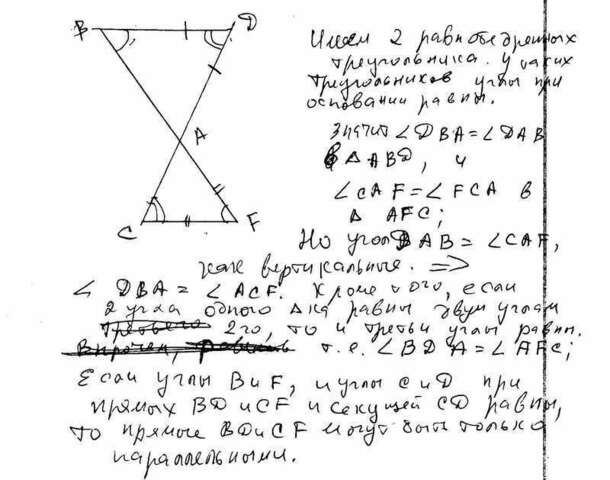 B
D
A
C
F
Имеем 2 равнобедренных
треугольника. У таких
треугольников углы при
основании равны.
Значит ∠DBA=∠DAB
в △ ABD, и
∠CAF=∠FCA в
△ AFC;
Но угол DAB = ∠CAF,
как вертикальные. =>
∠ DBA = ∠ ACF. Кроме того, если
2 угла одного △ка равны двум углам
2го, то и третьи углы равны.
т.е. ∠BDA=∠AFC;
Если углы B и F, и углы C и D при
прямых BD и CF и секущей CD равны,
то прямые BD и CF могут быть только
параллельными.